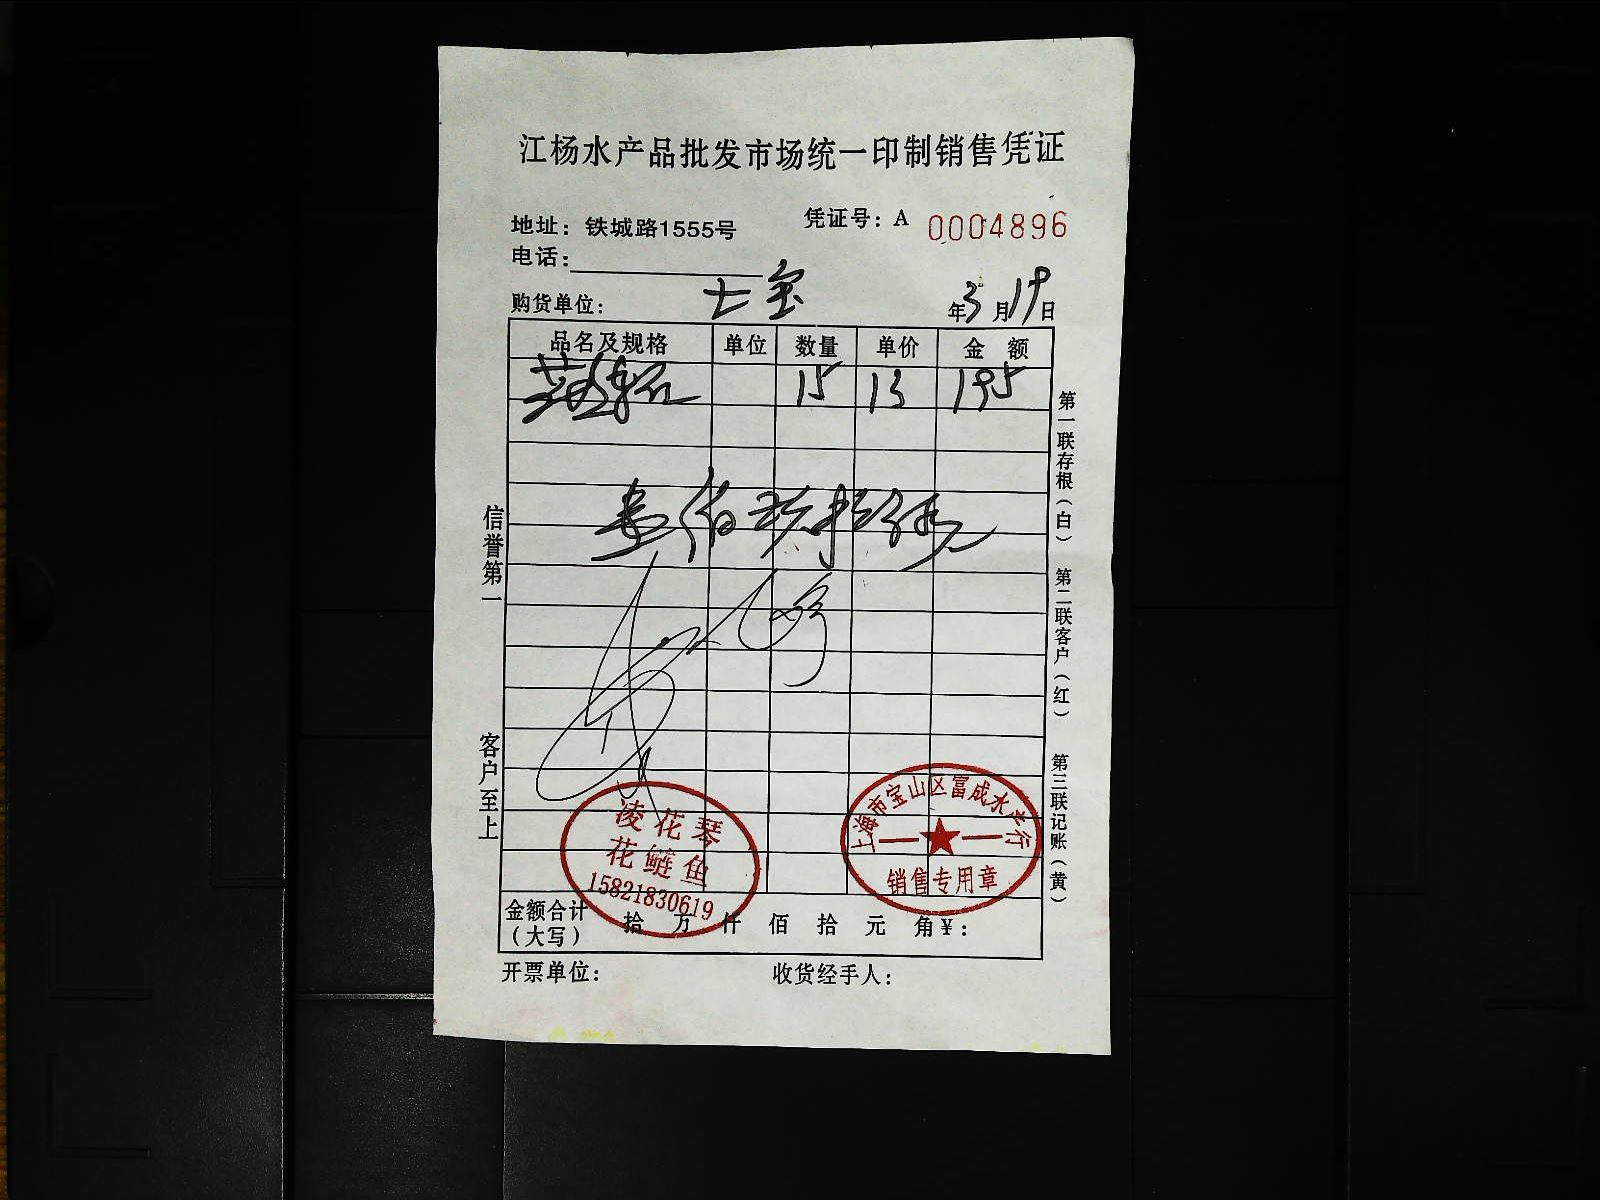 江杨水产品批发市场统一印制销售凭证
地址：铁城路1555号
凭证号：A 0004896
电话：
购货单位：七宝
年3月19日
品名及规格 单位 数量 单价 金额
15 13 195
壹佰玖拾伍元
信誉第一
客户至上
第一联存根（白）
第二联客户（红）
第三联记账（黄）
凌花琴
花鲢鱼
15821830619
上海市宝山区富成水产行
销售专用章
金额合计（大写） 拾 万 仟 佰 拾 元 角￥：
开票单位： 收货经手人：